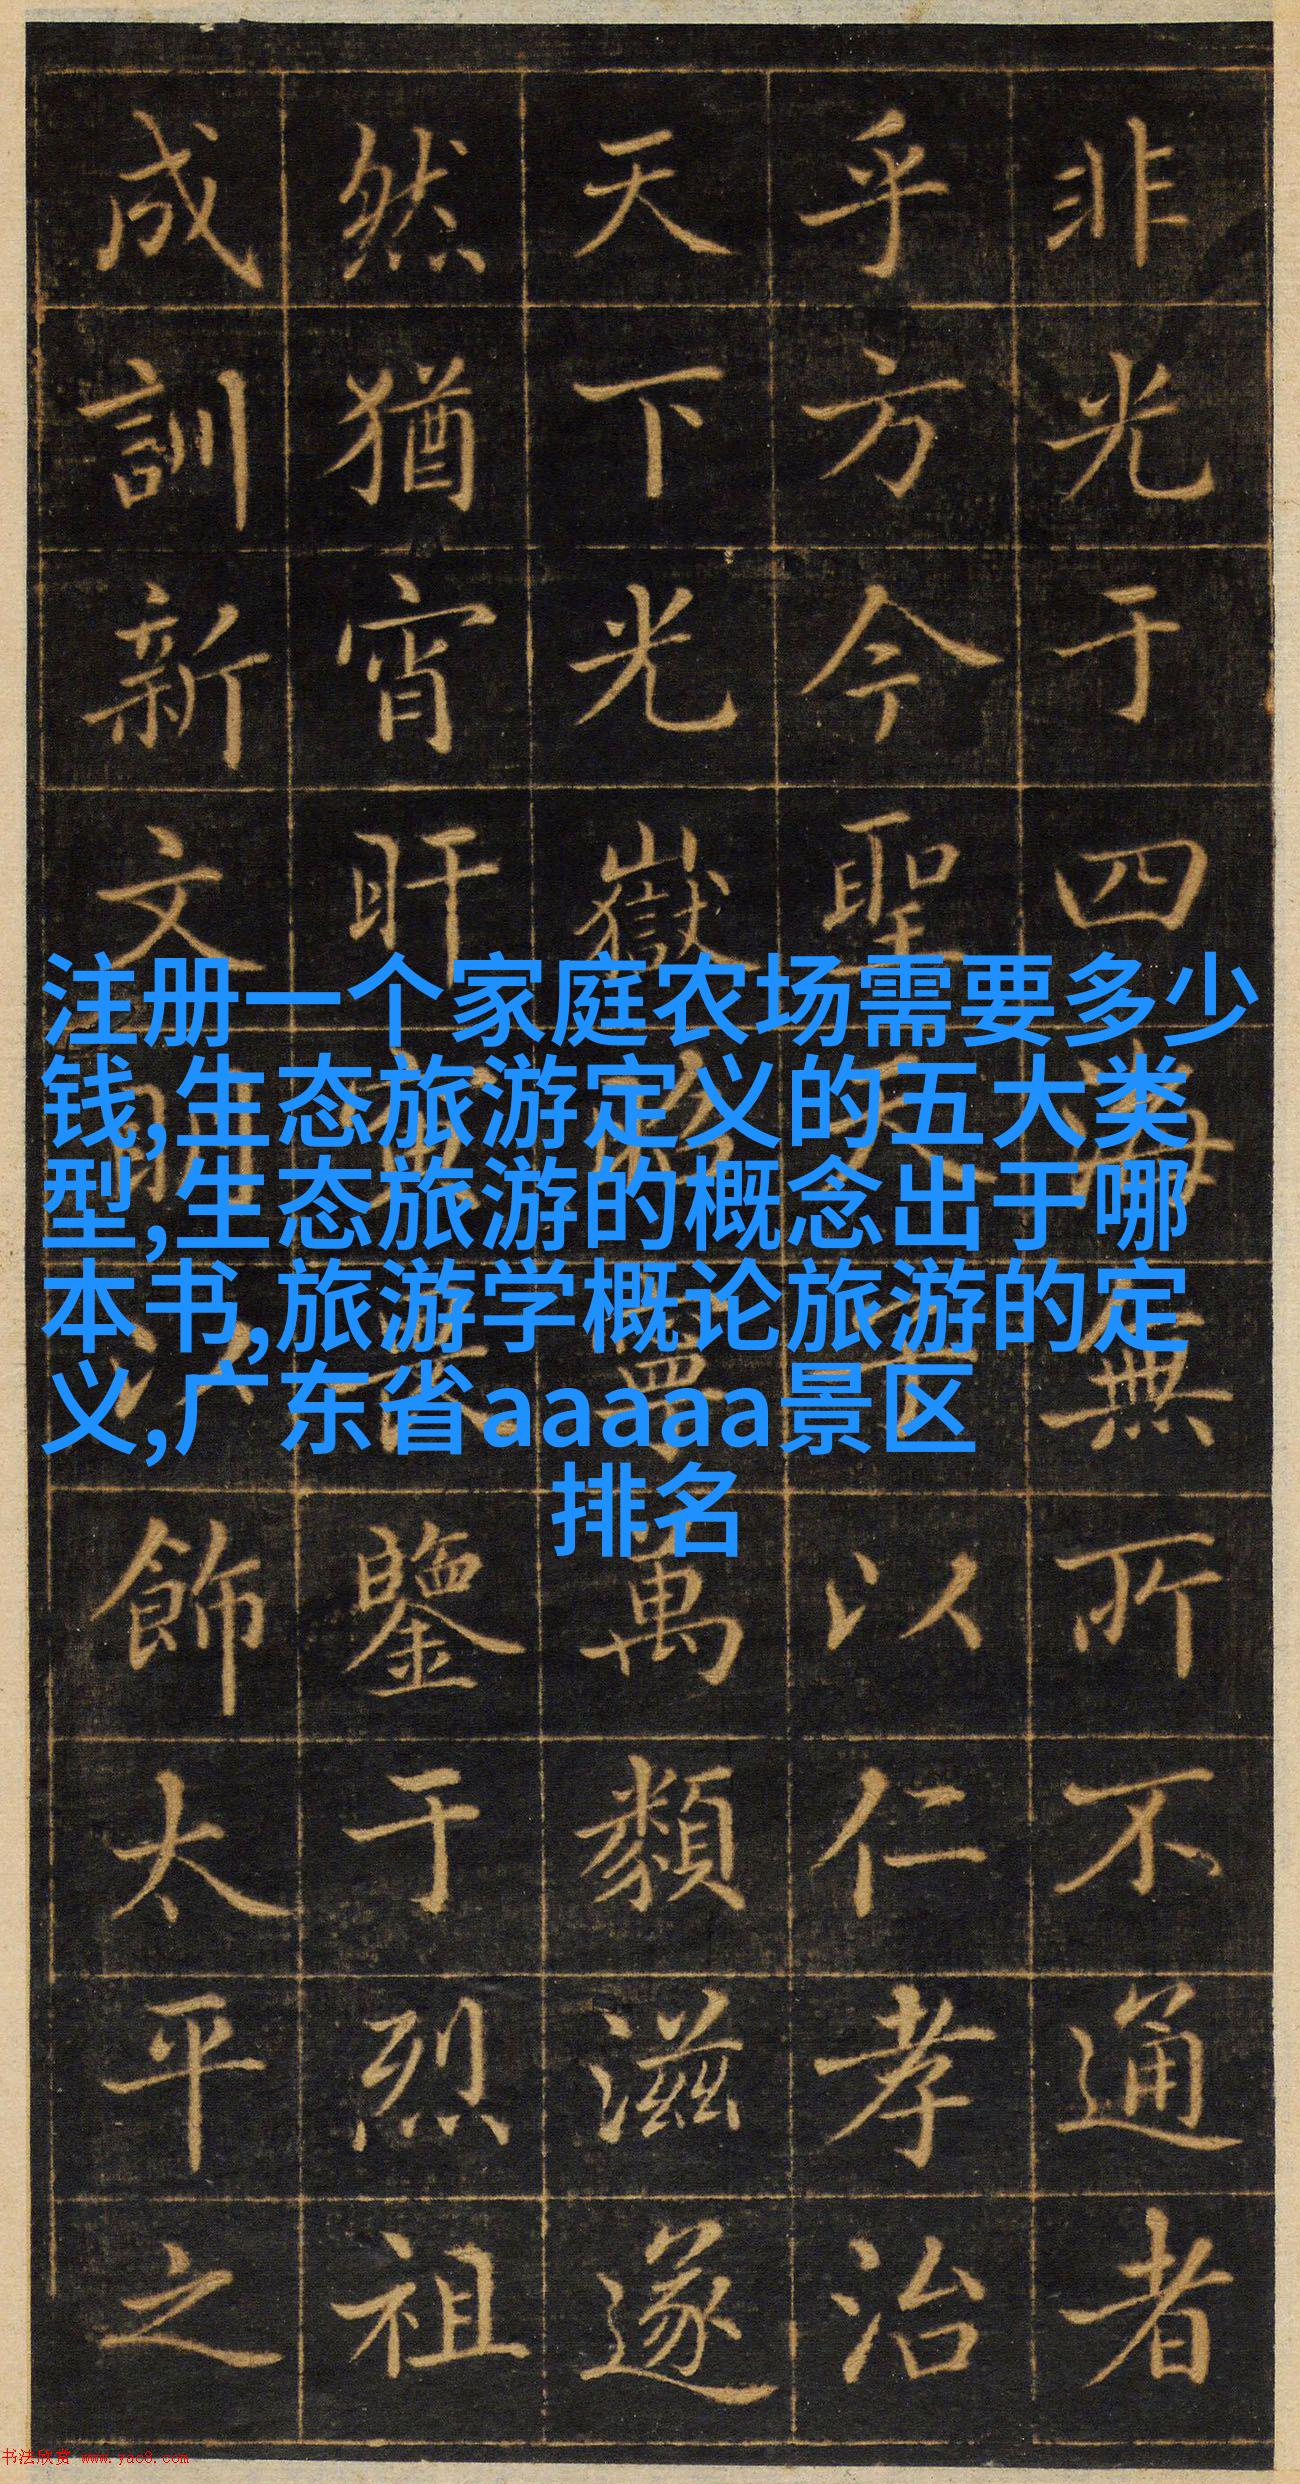 非光于四海無所不通者
乎方今聖天以仁孝治
天下光嶽萬類滋遂
然猶宵旰鑒于烈祖
成訓新文明飾太平之
注册一个家庭农场需要多少
钱,生态旅游定义的五大类
型,生态旅游的概念出于哪
本书,旅游学概论旅游的定
义,广东省aaaaa景区
排名
书法欣赏 www.yac8.com